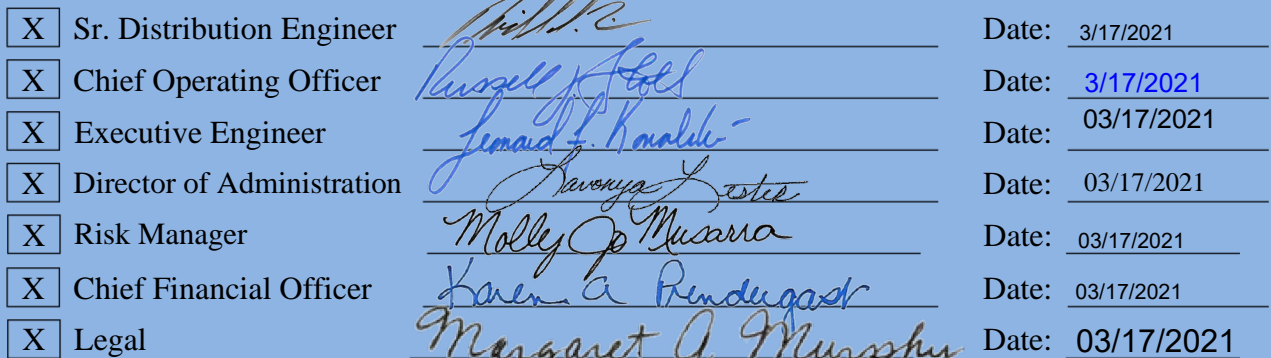 X Sr. Distribution Engineer Date: 3/17/2021
X Chief Operating Officer Russell J. Stoll Date: 3/17/2021
X Executive Engineer Leonard F. Kowalski Date: 03/17/2021
X Director of Administration Lavonya Lester Date: 03/17/2021
X Risk Manager Molly Jo Musarra Date: 03/17/2021
X Chief Financial Officer Karen A Prendergast Date: 03/17/2021
X Legal Margaret A. Murphy Date: 03/17/2021